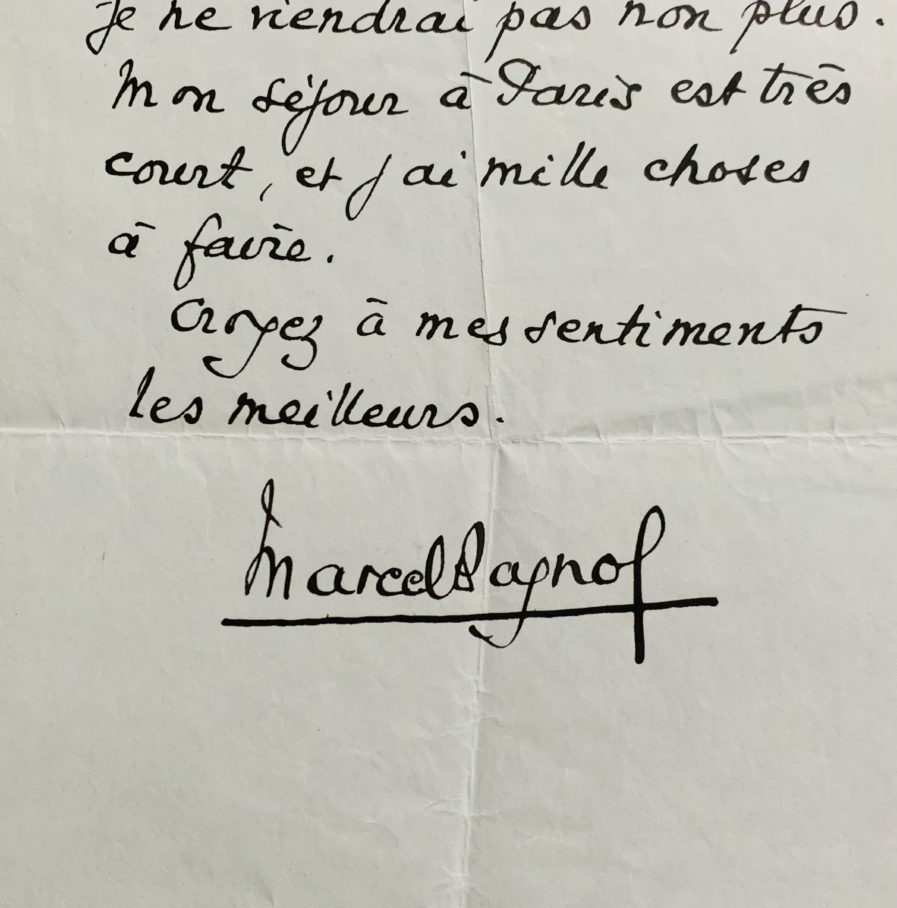 Je ne viendrai pas non plus.
Mon séjour à Paris est très
court, et j'ai mille choses
à faire.
Croyez à mes sentiments
les meilleurs.
Marcel Pagnol